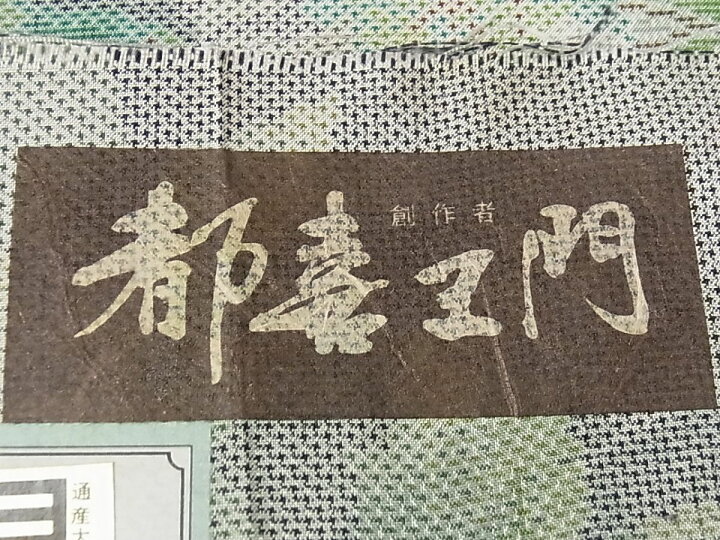 創作者
都喜ヱ門
通産大